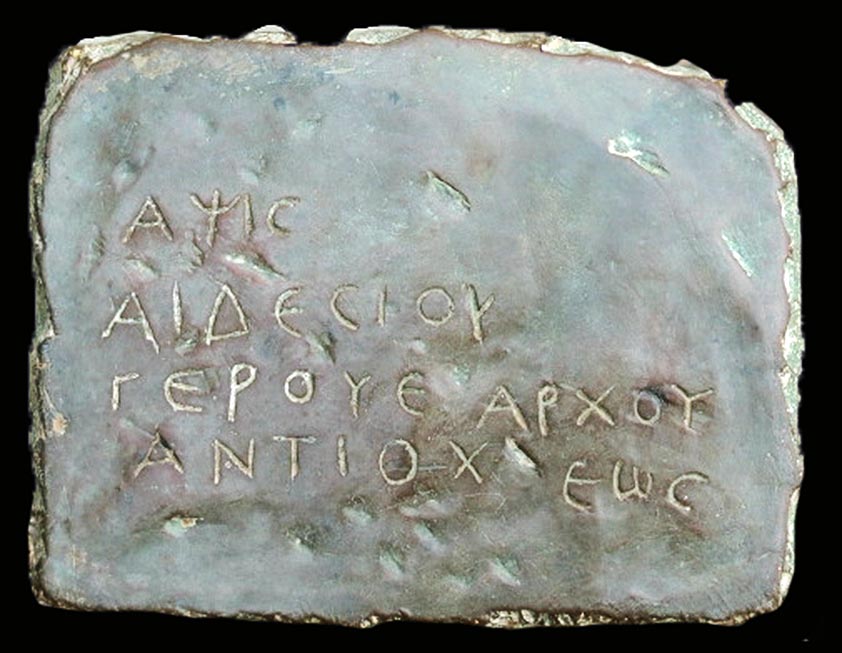 ΑΨΙϹ
ΑΙΔΕϹΙΟΥ
ΓΕΡΟΥΕ ΑΡΧΟΥ
ΑΝΤΙΟΧ ΕωϹ